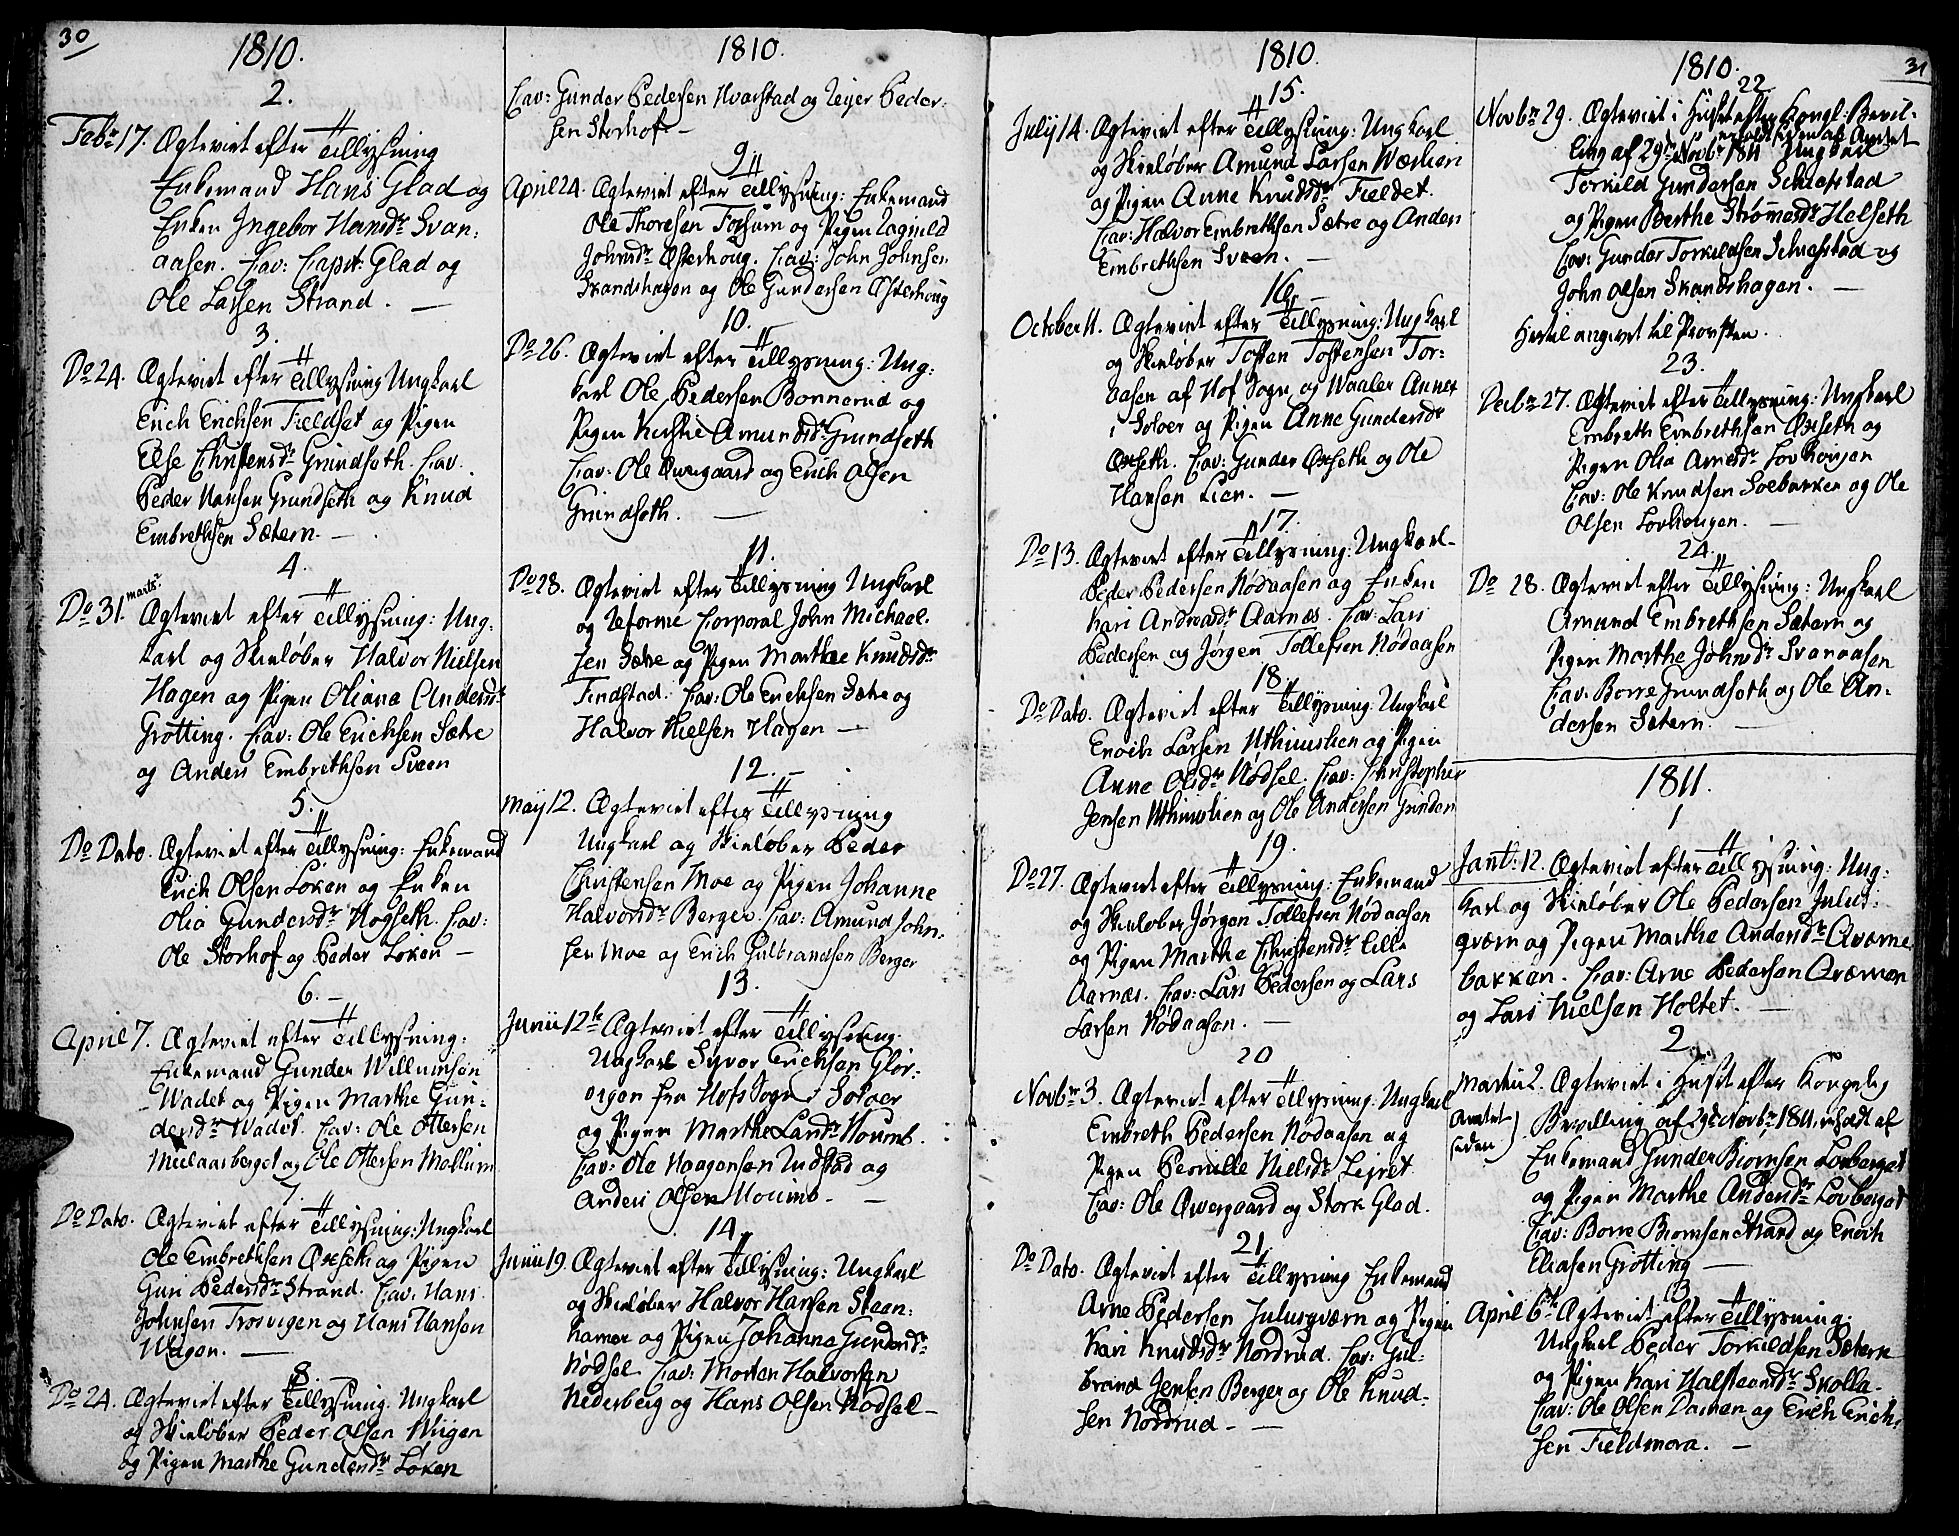 30
1810.
2.
Febr 17. Ægteviet efter Tillysning
Enkemand Hans Glad og
Enken Ingebor Hansdr Svan:
aasen. Cav: Capit: Glad og
Ole Larsen Strand. —
3.
Do 24. Ægteviet efter Tillysning Ungkarl
Erich Erichsen Fieldset og Pigen
Else Christensdr Grundseth. Cav.
Peder Hansen Grundseth og Knud
Embrethsen Sætern. —
4.
Do 31. marts. Ægteviet efter Tillysning: Ung:
karl og Skieløber Halvor Nielsen
Hagen og Pigen Oliana Andersdr
Grøtting. Cav: Ole Erichsen Sætre
og Anders Embrethsen Sveen
5.
Do Dato. Ægteviet efter Tillysning: Enkemand
Erich Olsen Løken og Enken
Olia Gundersdr Hogseth. Cav:
Ole Storhof og Peder Løken —
6. —
April 7. Ægteviet efter Tillysning:
Enkemand Gunder Willumsen
Wadet og Pigen Marthe Gun:
dersdr Wadet. Cav: Ole Ottersen
Mielaasberget og Ole Ottersen Mellum
7.
Do Dato. Ægteviet efter Tillysning: Ungkarl
Ole Embrethsen Oxseth og Pigen
Guri Pedersdr Strand. Cav: Hans
Johnsen Trosvigen og Hans Hansen
Wigen. —
8.
Do 24. Ægteviet efter Tillysning. Ungkarl
og Skieløber Peder Olsen Wiigen
og Pigen Marthe Gundersdr Løken
1810.
Cav: Gunder Pedersen Hvarstad og Reier Peder:
sen Storhof —
9.
April 24. Ægteviet efter Tillysning: Enkemand
Ole Thoresen Fossum og Pigen Ragnild
Johnsdr Østerhoug. Cav: John Johnsen
Skandshagen og Ole Gundersen Østerhoug
10.
Do 26. Ægteviet efter Tillysning: Ung:
karl Ole Pedersen Bonnerud og
Pigen Kirstie Amundsdr Grundseth
Cav: Ole Qvergaard og Erich Olsen
Grundseth. —
11.
Do 28. Ægteviet efter Tillysning Ungkarl
og Reforme Corporal John Michael:
sen Sætre og Pigen Marthe Knudsdr
Findstad. Cav: Ole Erichsen Sætre og
Halvor Nielsen Hagen —
12. —
May 12. Ægteviet efter Tillysning
Ungkarl og Skieløber Peder
Christensen Moe og Pigen Johanne
Halvorsdr Berger. Cav: Amund John:
sen Moe og Erich Gulbrandsen Berger
13.
Junii 12te Ægteviet efter Tillysning.
Ungkarl Syver Erichsen Glor:
vigen fra Hofs Sogn i Soloer
og Pigen Marthe Larsdr Noumb.
Cav: Ole Haagensen Rudstad og
Anders Olsen Noumb. —
14.
Junii 19. Ægteviet efter Tillysning: Ungkarl
og Skieløber Halvor Hansen Steen:
hamer og Pigen Johanna Gundersdr
Nødsel. Cav: Morten Halvorsen
Nederberg og Hans Olsen Nodsel —
1810.
15.
July 14. Ægteviet efter Tillysning: Ungkarl
og Skieløber Amund Larsen Wæskeri
og Pigen Anne Knudsdr Fieldet.
Cav: Halvor Embrethsen Sætre og Anders
Embrethsen Sveen. —
16. —
October 11. Ægteviet efter Tillysning: Ungkarl
og Skieløber Tosten Tostensen Tor:
aasen af Hof Sogn og Waaler Annex
i Soloer og Pigen Anne Gundersdr
Oxseth. Cav: Gunder Oxseth og Ole
Hansen Lien. —
17.
Do 13. Ægteviet efter Tillysning: Ungkarl
Peder Pedersen Nödaasen og Enken
Kari Andreasdr Aarnes. Cav: Lars
Pedersen og Jørgen Tollefsen Nödaasen
18.
Do Dato. Ægteviet efter Tillysning Ungkarl
Enoch Larsen Uthuuslien og Pigen
Anne Olsdr Nødsel. Cav: Christopher
Jensen Uthuuslien og Ole Andersen Gunder
19.
Do 27. Ægteviet efter Tillysning: Enkemand
og Skieløber Jørgen Tollefsen Nödaasen
og Pigen Marthe Christensdr Lille
Aarnæs. Cav: Lars Pedersen og Lars
Larsen Nødaasen. —
20
Novbr 3. Ægteviet efter Tillysning: Ungkarl
Embreth Pedersen Nødaasen og
Pigen Pernille Nielsdr Lejret
Cav: Ole Qvergaard og Stork Glad.
21.
Do Dato. Ægteviet efter Tillysning Enkemand
Arne Pedersen Julusqværn og Pigen
Kari Knudsdr Nordrud. Cav: Gul:
brand Jensen Berger og Ole Knud:
sen Nordrud — —
1810.
31
22
Novbr 29. Ægteviet i Huset efter Kongl: Bevil:
ling af 29de Novbr 1811 Ungkarl
Torkild Gundersen Schiefstad
og Pigen Berthe Strømersdr Helseth
Cav: Gunder Torkildsen Schiefstad og
John Olsen Skandshagen. —
hertil angivet til Provsten.
23.
Decbr 27. Ægteviet efter Tillysning: Ungkarl
Embreth Embrethsen Oxseth og
Pigen Olia Arnesdr Lovhougen
Cav: Ole Knudsen Soebakken og Ole
Olsen Lovhougen. —
24.
Do 28. Ægteviet efter Tillysning: Ungkarl
Amund Embrethsen Sætern og
Pigen Marthe Johnsdr Svanaasen
Cav: Borre Grundseth og Ole An:
dersen Sætern. —
1811.
1
Janr: 12. Ægteviet efter Tillysning: Ung:
karl og Skieløber Ole Pedersen Julus:
qværn og Pigen Marthe Andersdr Qværne
bakken. Cav: Arne Pedersen Qværnen
og Lars Nielsen Holtet. —
2.
Martii 2. Ægteviet i Huset efter Kongelig
Bevilling af 29de Novbr 1811, erholdt af
Amtet
Enkemand Gunder Biørnsen Lovberget
og Pigen Marthe Andersdr Lovberget
Cav: Borre Biornsen Strand og Enoch
Eliasen Grötting —
3
April 6te Ægteviet efter Tillysning:
Ungkarl Peder Torkildsen Sætern
og Pigen Kari Halsteensdr Skolla.
Cav: Ole Olsen Damen og Erich Erich:
sen Fieldmora. —